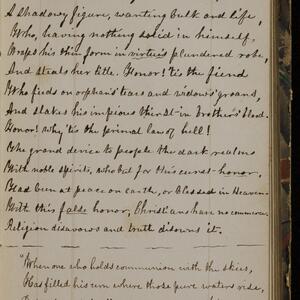 A shadowy figure, wanting bulk and life,
Who, having nothing solid in himself,
Wraps his thin form in virtue's plundered robe,
And steals her title. Honor! 'tis the fiend
Who feeds on orphan's tears and widow's groans,
And slakes his impious thirst in brother's blood.
Honor! why 'tis the primal law of hell!
The grand device to people the dark realms
With noble spirits, who but for this curst honor,
Had been at peace on earth, or blessed in Heaven.
With this false honor, Christians have no commerce.
Religion disavows and truth disowns it.
"When one who holds communion with the skies,
Has filled his urn where those pure waters rise,